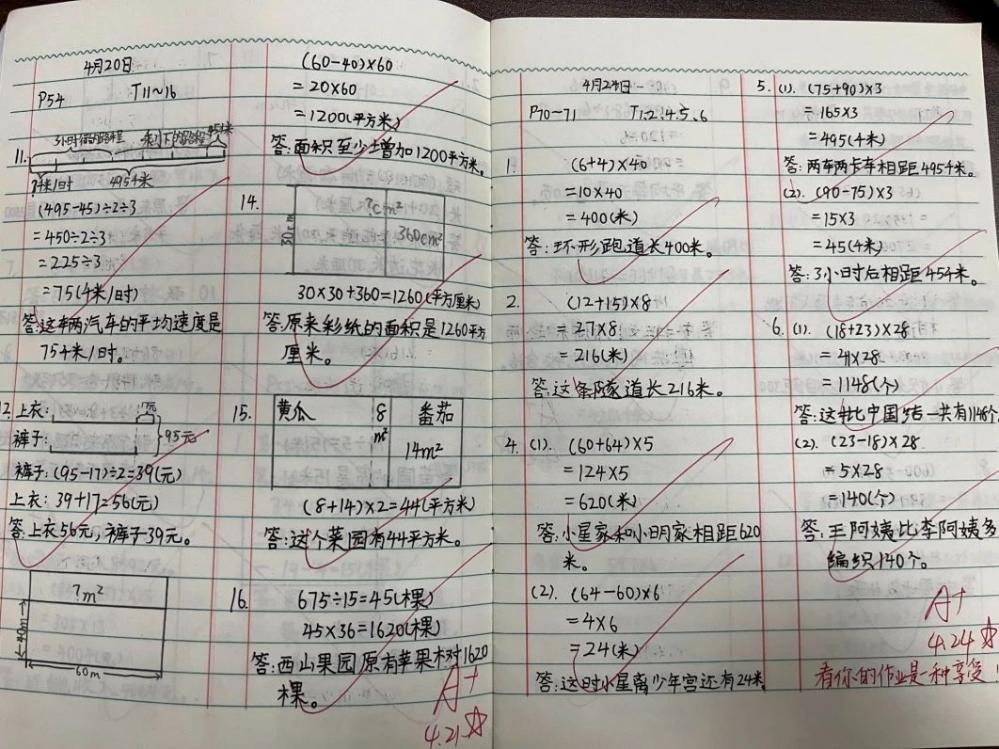 4月20日
P54 T11~16
11.
495千米
(495-45)÷2÷3
=450÷2÷3
=225÷3
=75(千米/时)
答:这车两汽车的平均速度是
75千米/时。
12. 上衣:
裤子:
95元
裤子:(95-17)÷2=39(元)
上衣:39+17=56(元)
答:上衣56元,裤子39元。
?m²
40m
60m
(60-40)×60
=20×60
=1200(平方米)
答:面积至少增加1200平方米。
14.
?cm²
30cm
360cm²
30×30+360=1260(平方厘米)
答:原来彩纸的面积是1260平方
厘米。
15.
黄瓜 8 番茄
m² 14m²
(8+14)×2=44(平方米)
答:这个菜园有44平方米。
16. 675÷15=45(棵)
45×36=1620(棵)
答:西山果园原有苹果树1620
棵。
A+
4.21
4月24日
P70~71 T1.2.4.5.6
1. (6+4)×40
=10×40
=400(米)
答:环形跑道长400米。
2. (12+15)×8
=27×8
=216(米)
答:这条隧道长216米。
4. (1). (60+64)×5
=124×5
=620(米)
答:小星家和小明家相距620
米。
(2). (64-60)×6
=4×6
=24(米)
答:这时小星离少年宫还有24米。
5. (1). (75+90)×3
=165×3
=495(千米)
答:两车两卡车相距495千米。
(2). (90-75)×3
=15×3
=45(千米)
答:3小时后相距45千米。
6. (1). (18+23)×28
=41×28
=1148(个)
一共有1148个
(2). (23-18)×28
=5×28
=140(个)
答:王阿姨比李阿姨多
编织140个。
A+
4.24
看你的作业是一种享受!